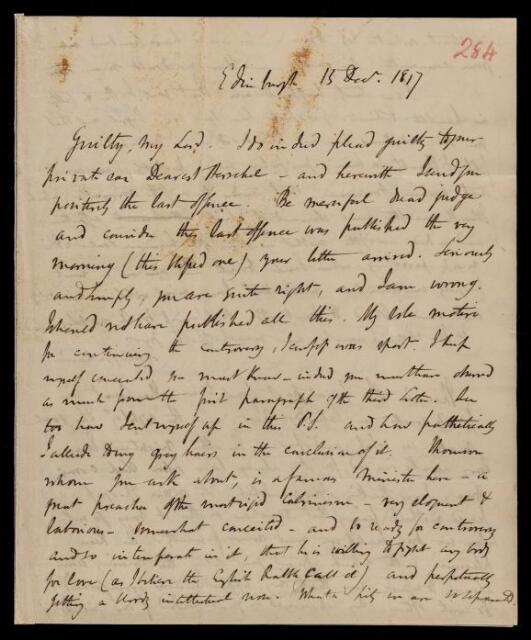 284
Edinburgh 15 Decr. 1817
Guilty, My Lord. I do indeed plead guilty to your
private ear Dearest Herschel - and herewith I send you
positively the last offence. Be merciful dread judge
and consider this last offence was published the very
morning (this blessed one) your letter arrived. Seriously
and simply, you are quite right, and I am wrong.
I should not have published all this. My sole motive
for continuing the controversy, I confess was sport. I kept
myself concealed you must know - indeed you must have observed
as much from the first paragraph of the third letter. See
too how I cut myself up in this P.S. and how pathetically
I allude to my grey hairs in the conclusion of it. Thomson
whom you ask about, is a famous Minister here - a
great preacher of the most rigid Calvinism - very eloquent &
laborious - somewhat conceited - and so ready for controversy
and so intemperate in it, that he is willing to fight any body
for love (as I believe the English call it) and perpetually
getting a bloody intellectual nose. What a pity we are so separated